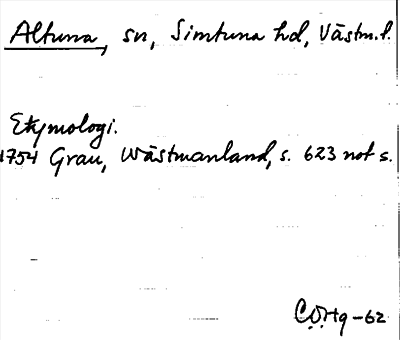 Altuna, sn, Simtuna hd, Västm. l.
Etymologi.
1754 Grau, Wästmanland, s. 623 not s.
C.O.Hg -62